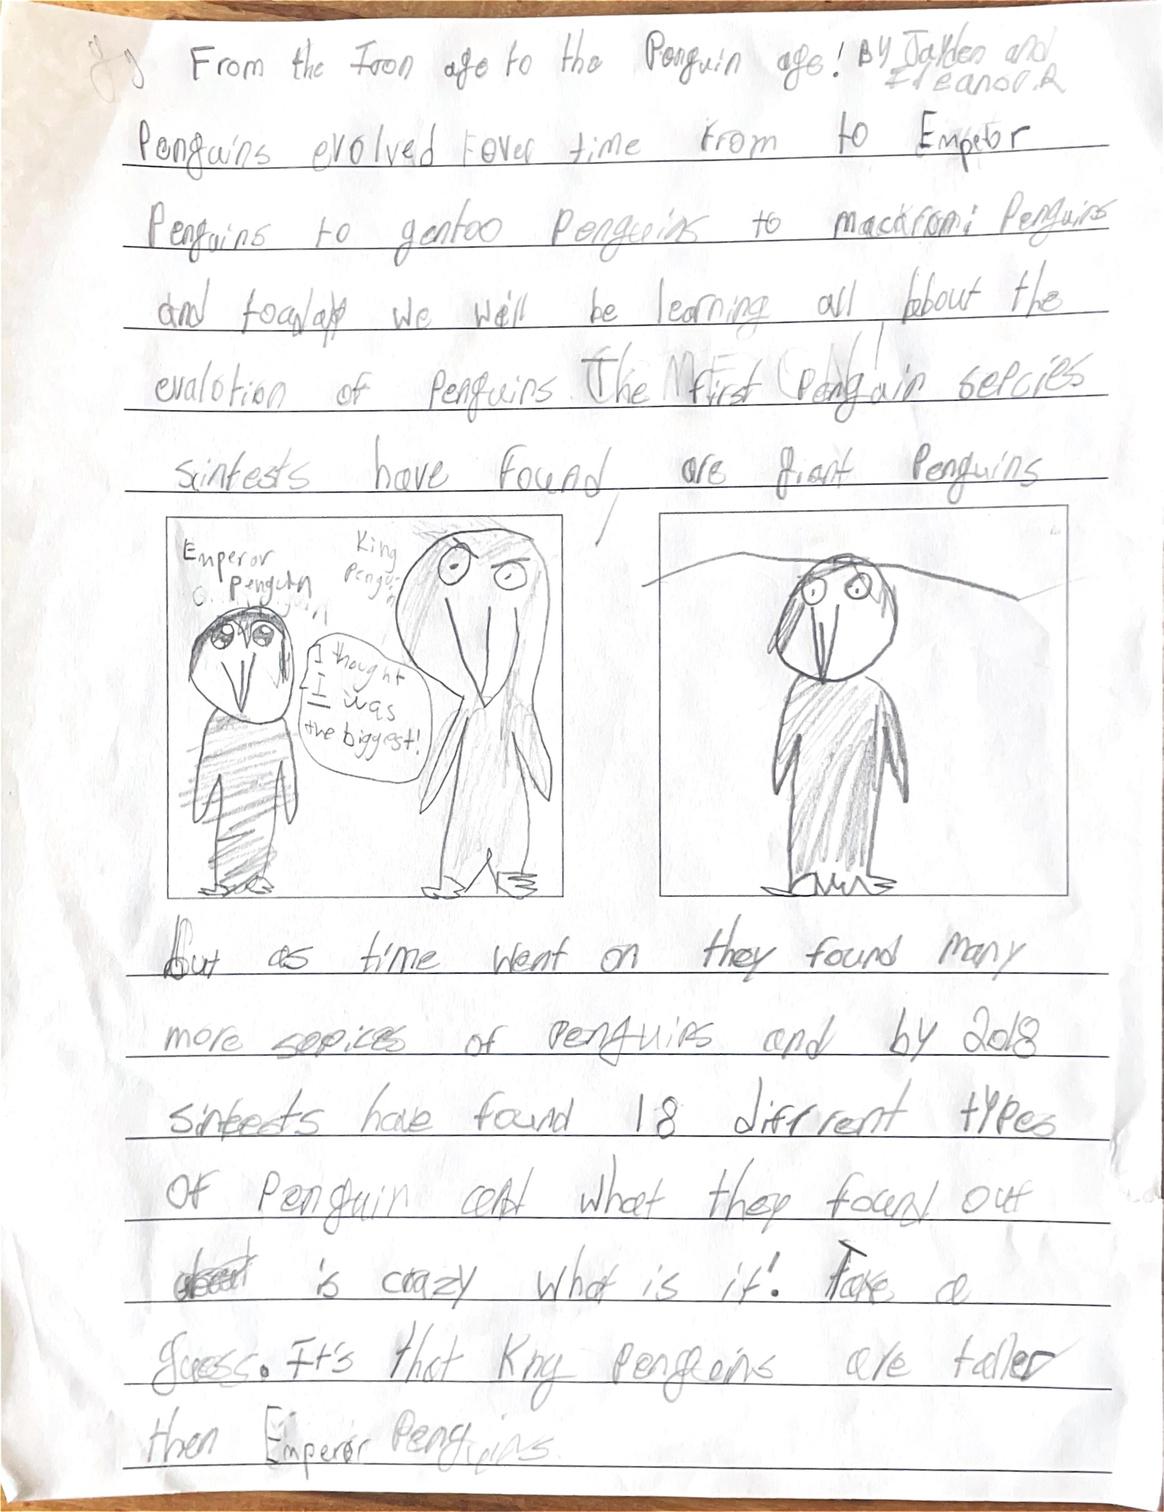 From the Iron age to the Penguin age! By Jayden and
Eleanor.R
Penguins evolved over time from to Emperor
Penguins to gentoo Penguins to macaroni Penguins
and today we will be learning all about the
evalotion of Penguins. The first Penguin sepcies
sintests have found are giant Penguins
Emperor
Penguin
King
Penguin
I thought
I was
the biggest!
But as time went on they found many
more sepices of Penguins and by 2018
sintests have found 18 diffrent types
of Penguin and what they found out
is crazy what is it! Take a
guess. It's that King Penguins are taller
then Emperor Penguins.